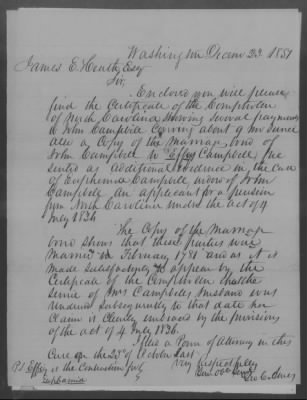 Washington Decem 23. 1851
James E. Heath Esq
Sir,
Enclosed you will please
find the Certificate of the Comptroller
of North Carolina showing several payments
to John Campbell covering about 9 mo service
also a Copy of the Marriage bond of
John Campbell to Effey Campbell, pre
sented as additional evidence in the case
of Euphemia Campbell widow of John
Campbell an applicant for a pension
from North Carolina under the act of 4
July 1836
The Copy of the Marriage
bond shows that these parties were
Married in February 1781 and as it is
made satisfactorily to appear by the
Certificate of the Comptroller that the
service of Mrs Campbells husband was
rendered subsequently to that date her
claim is clearly embraced by the provisions
of the act of 4 July 1836.
I filed a Power of Attorney in this
Case on the 23d of October last.
Very respectfully
P.S. Effey is the Contraction for
Euphamia
Your Obt Servt